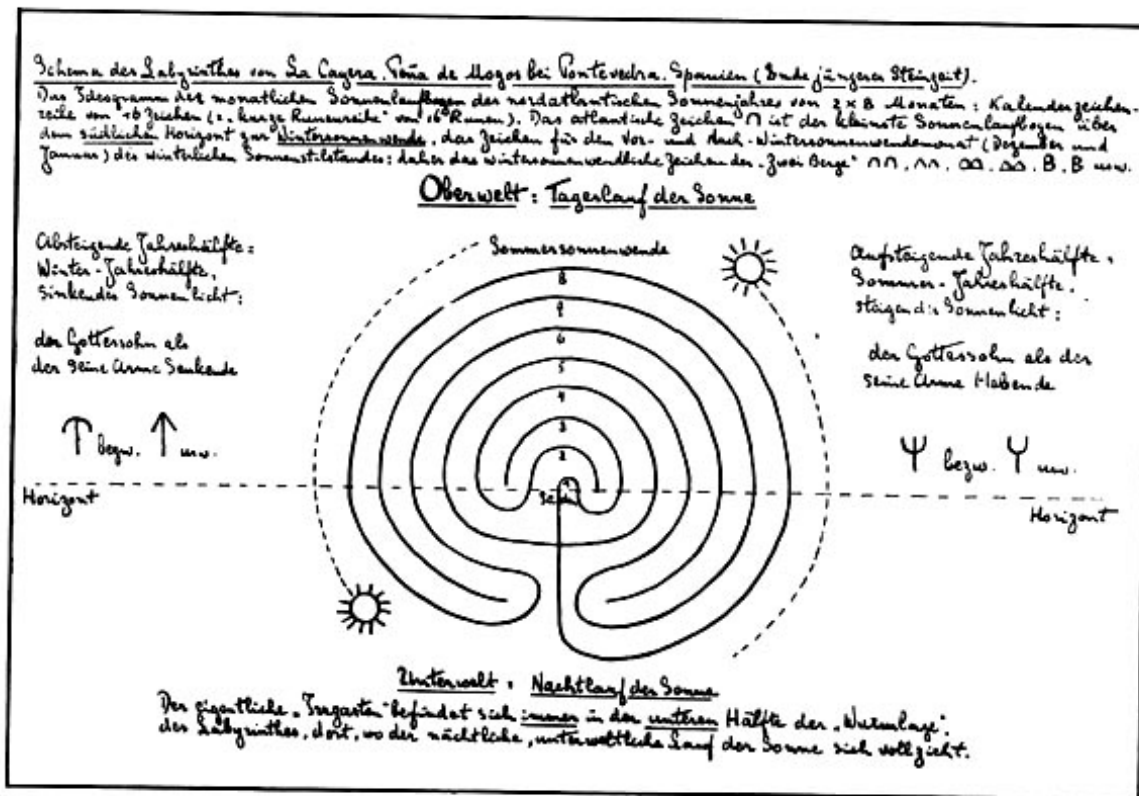 Schema des Labyrinthes von La Cayera. Peña de Mogos bei Pontevedra. Spanien (Ende jüngerer Steinzeit).
Das Ideogramm der monatlichen Sonnenlaufbogen des nordatlantischen Sonnenjahres von 2 x 8 Monaten: Kalenderzeichen-
reihe von 16 Zeichen (z. "kurze Runenreihe" von 16 Runen). Das atlantische Zeichen ∩ ist der kleinste Sonnenlaufbogen über
dem südlichen Horizont zur Wintersonnenwende, das Zeichen für den Vor- und Nach-Wintersonnenwendemonat (Dezember und
Januar) des winterlichen Sonnenstilstandes: daher das wintersonnenwendliche Zeichen der "Zwei Berge" ∩∩, B, B usw.
Oberwelt: Tageslauf der Sonne
Absteigende Jahreshälfte:
Winter-Jahreshälfte,
sinkendes Sonnenlicht:
der Gottessohn als
der seine Arme Senkende
bezw. ↑ usw.
Horizont
Sommersonnenwende
8
7
6
5
4
3
2
Aufsteigende Jahreshälfte:
Sommer-Jahreshälfte.
steigendes Sonnenlicht:
der Gottessohn als der
seine Arme Hebende
Ψ bezw. Y usw.
Horizont
Unterwelt: Nachtlauf der Sonne
Der eigentliche "Irrgarten" befindet sich immer in der unteren Hälfte der "Wurmlage".
des Labyrinthes, dort, wo der nächtliche, unterweltliche Lauf der Sonne sich vollzieht.